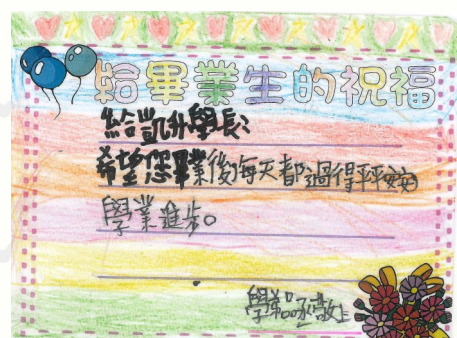 給畢業生的祝福
給凱升學長:
希望您畢業後每天都過得平平安安
學業進步。
學弟 敬上